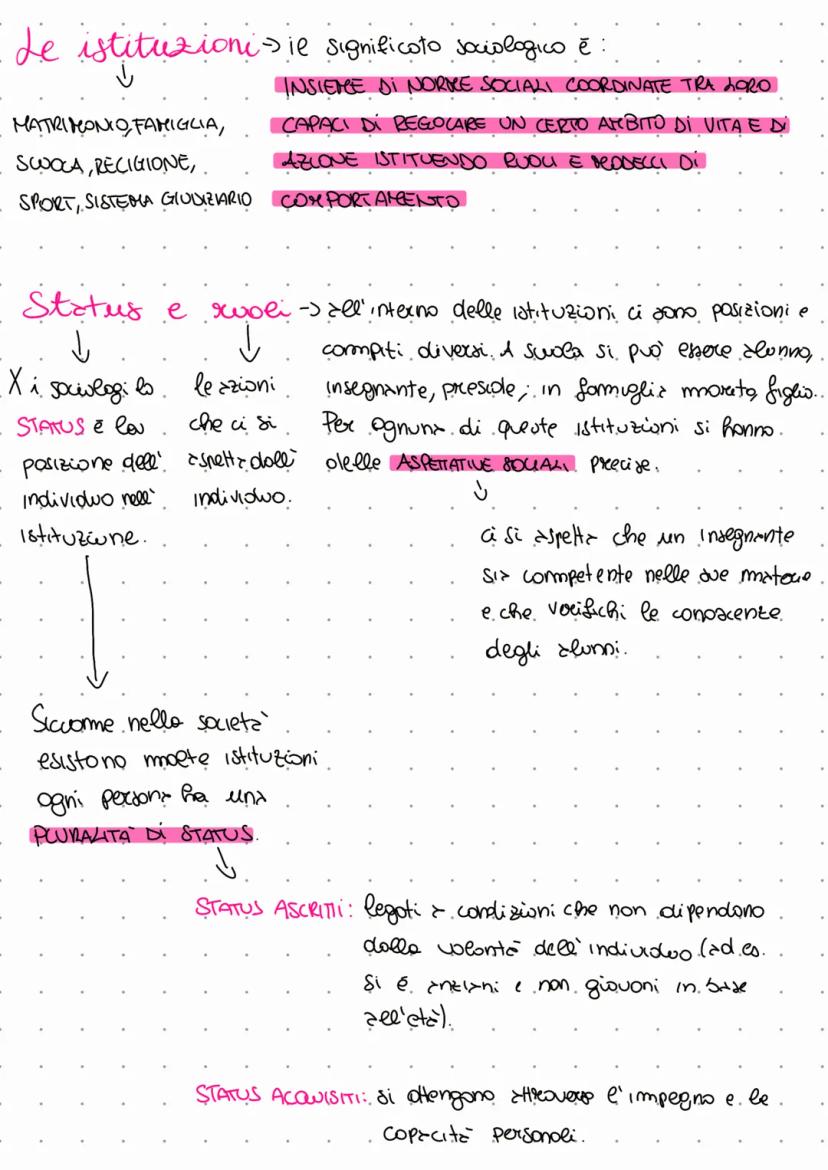 Le istituzioni → il significato sociologico è :
INSIEME DI NORME SOCIALI COORDINATE TRA LORO
MATRIMONIO, FAMIGLIA,
CAPACI DI REGOLARE UN CERTO AMBITO DI VITA E DI
SCUOLA, RELIGIONE,
AZIONE ISTITUENDO RUOLI E MODELLI DI
SPORT, SISTEMA GIUDIZIARIO
COMPORTAMENTO
Status e ruoli → all'interno delle istituzioni ci sono posizioni e
compiti diversi. A scuola si può essere alunno,
insegnante, preside; in famiglia marito, figlio.
Per ognuna di queste istituzioni si hanno
delle ASPETTATIVE SOCIALI precise.
X i sociologi lo
STATUS è la
posizione dell'
individuo nell'
istituzione.
le azioni
che ci si
aspetta dall'
individuo.
ci si aspetta che un insegnante
sia competente nelle sue materie
e che verifichi le conoscenze
degli alunni.
Siccome nella società
esistono molte istituzioni
ogni persona ha una
PLURALITÀ DI STATUS.
STATUS ASCRITTI: legati a condizioni che non dipendono
dalla volontà dell'individuo (ad es.
si è anziani e non giovani in base
all'età).
STATUS ACQUISITI: si ottengono attraverso l'impegno e le
capacità personali.